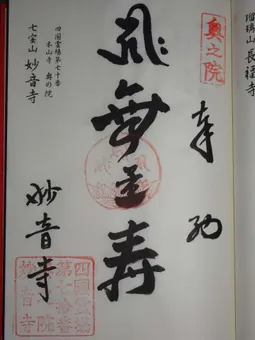 瑠璃山 長福寺
奥之院
奉納
無量寿
四國霊場第七十番
本山寺 奥の院
七宝山 妙音寺
妙音寺
四國霊場
第七十番
奥之院
妙音寺